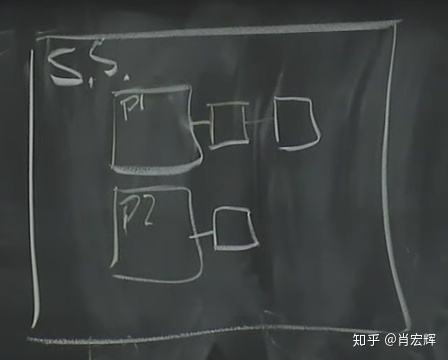 S.S.
P1
P2
知乎 @肖宏辉